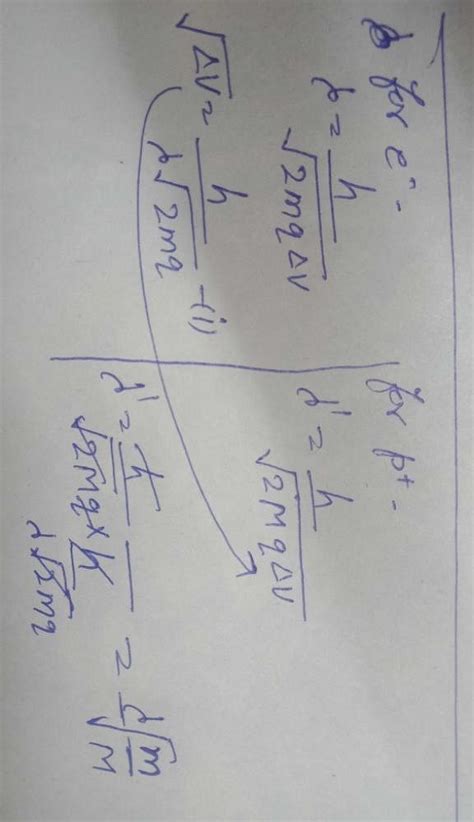 for e⁻ -
λ = h / √(2mqΔV)
√ΔV = h / λ√(2mq) -(i)
for p⁺ -
λ' = h / √(2MqΔV)
λ' = h / √(2Mq) × h / λ√(2mq) = λ√(m/M)